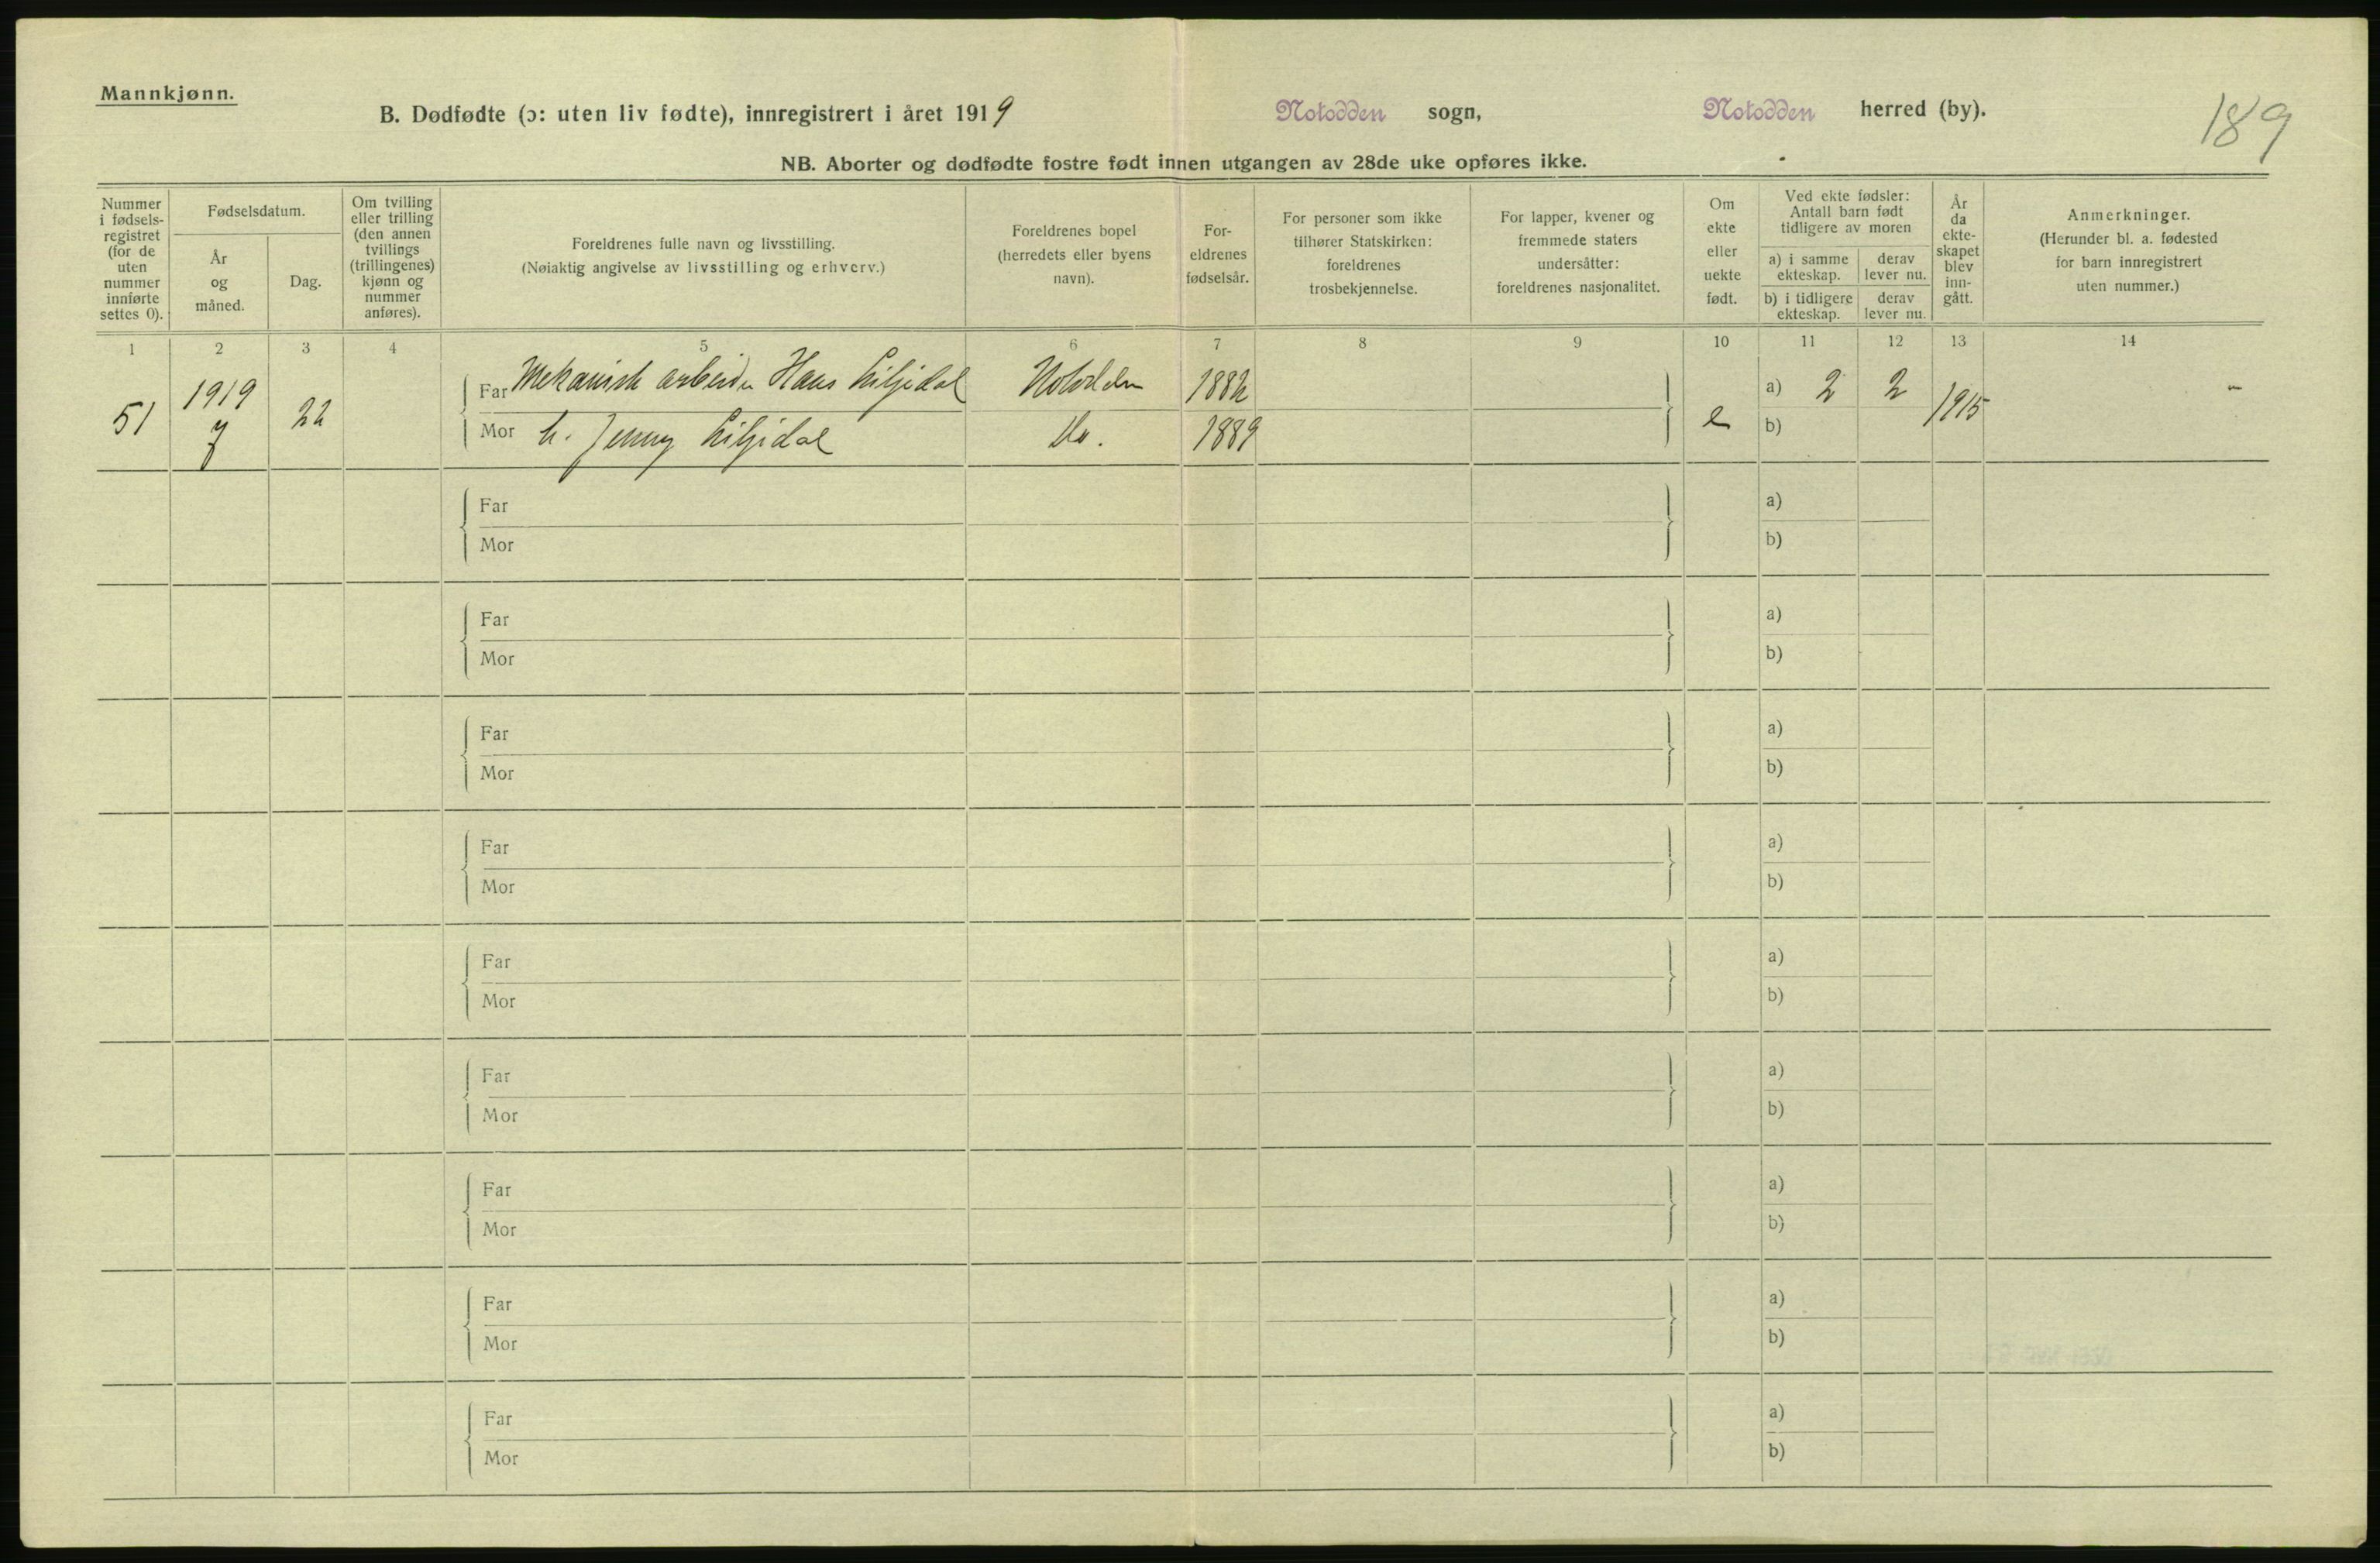 Mannkjønn.
B. Dødfødte (ɔ: uten liv fødte), innregistrert i året 1919 Notodden sogn, Notodden herred (by).
189
NB. Aborter og dødfødte fostre født innen utgangen av 28de uke opføres ikke.
Nummer i fødsels-registret (for de uten nummer innførte settes 0).
Fødselsdatum.
År og måned.
Dag.
Om tvilling eller trilling (den annen tvillings (trillingenes) kjønn og nummer anføres).
Foreldrenes fulle navn og livsstilling.
(Nøiaktig angivelse av livsstilling og erhverv.)
Foreldrenes bopel (herredets eller byens navn).
For-eldrenes fødselsår.
For personer som ikke tilhører Statskirken: foreldrenes trosbekjennelse.
For lapper, kvener og fremmede staters undersåtter: foreldrenes nasjonalitet.
Om ekte eller uekte født.
Ved ekte fødsler: Antall barn født tidligere av moren
a) i samme ekteskap.
derav lever nu.
b) i tidligere ekteskap.
derav lever nu.
År da ekte-skapet blev inn-gått.
Anmerkninger.
(Herunder bl. a. fødested for barn innregistrert uten nummer.)
1 2 3 4 5 6 7 8 9 10 11 12 13 14
51 1919 7 22
Far Mekanisk arbeider Hans Liljedal Notodden 1882
Mor h. Jenny Liljedal Do. 1889
e a) 2 2 1915
b)
Far a)
Mor b)
Far a)
Mor b)
Far a)
Mor b)
Far a)
Mor b)
Far a)
Mor b)
Far a)
Mor b)
Far a)
Mor b)
Far a)
Mor b)
Far a)
Mor b)